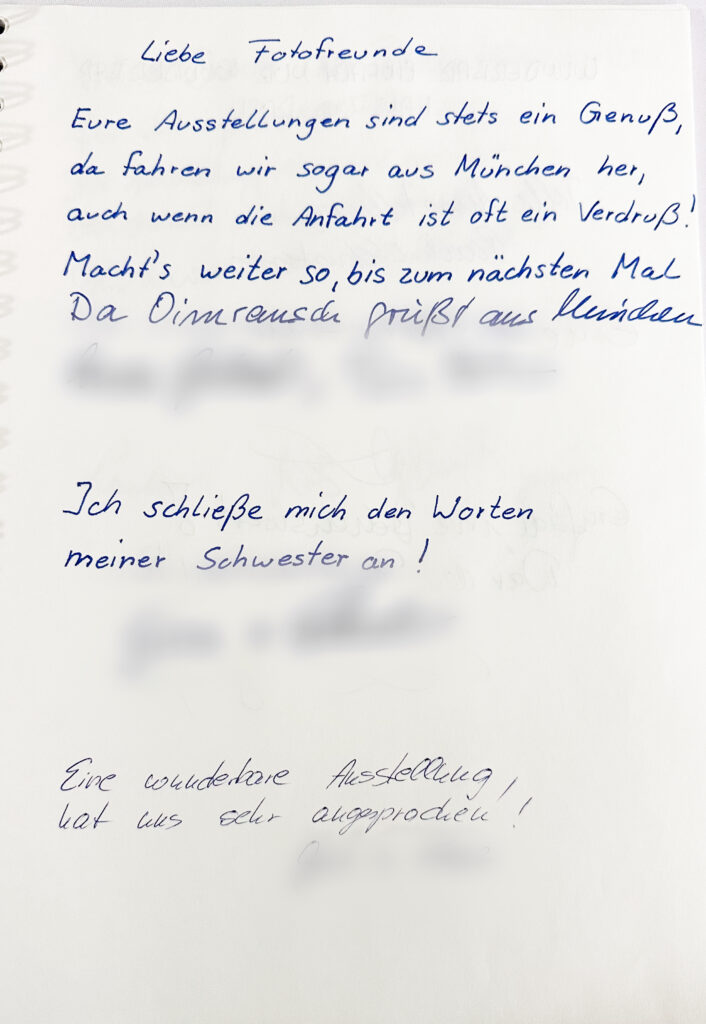 Liebe Fotofreunde
Eure Ausstellungen sind stets ein Genuß,
da fahren wir sogar aus München her,
auch wenn die Anfahrt ist oft ein Verdruß!
Macht's weiter so, bis zum nächsten Mal
Da grüßt aus München
Ich schließe mich den Worten
meiner Schwester an!
Eine wunderbare Ausstellung,
hat uns sehr angesprochen!